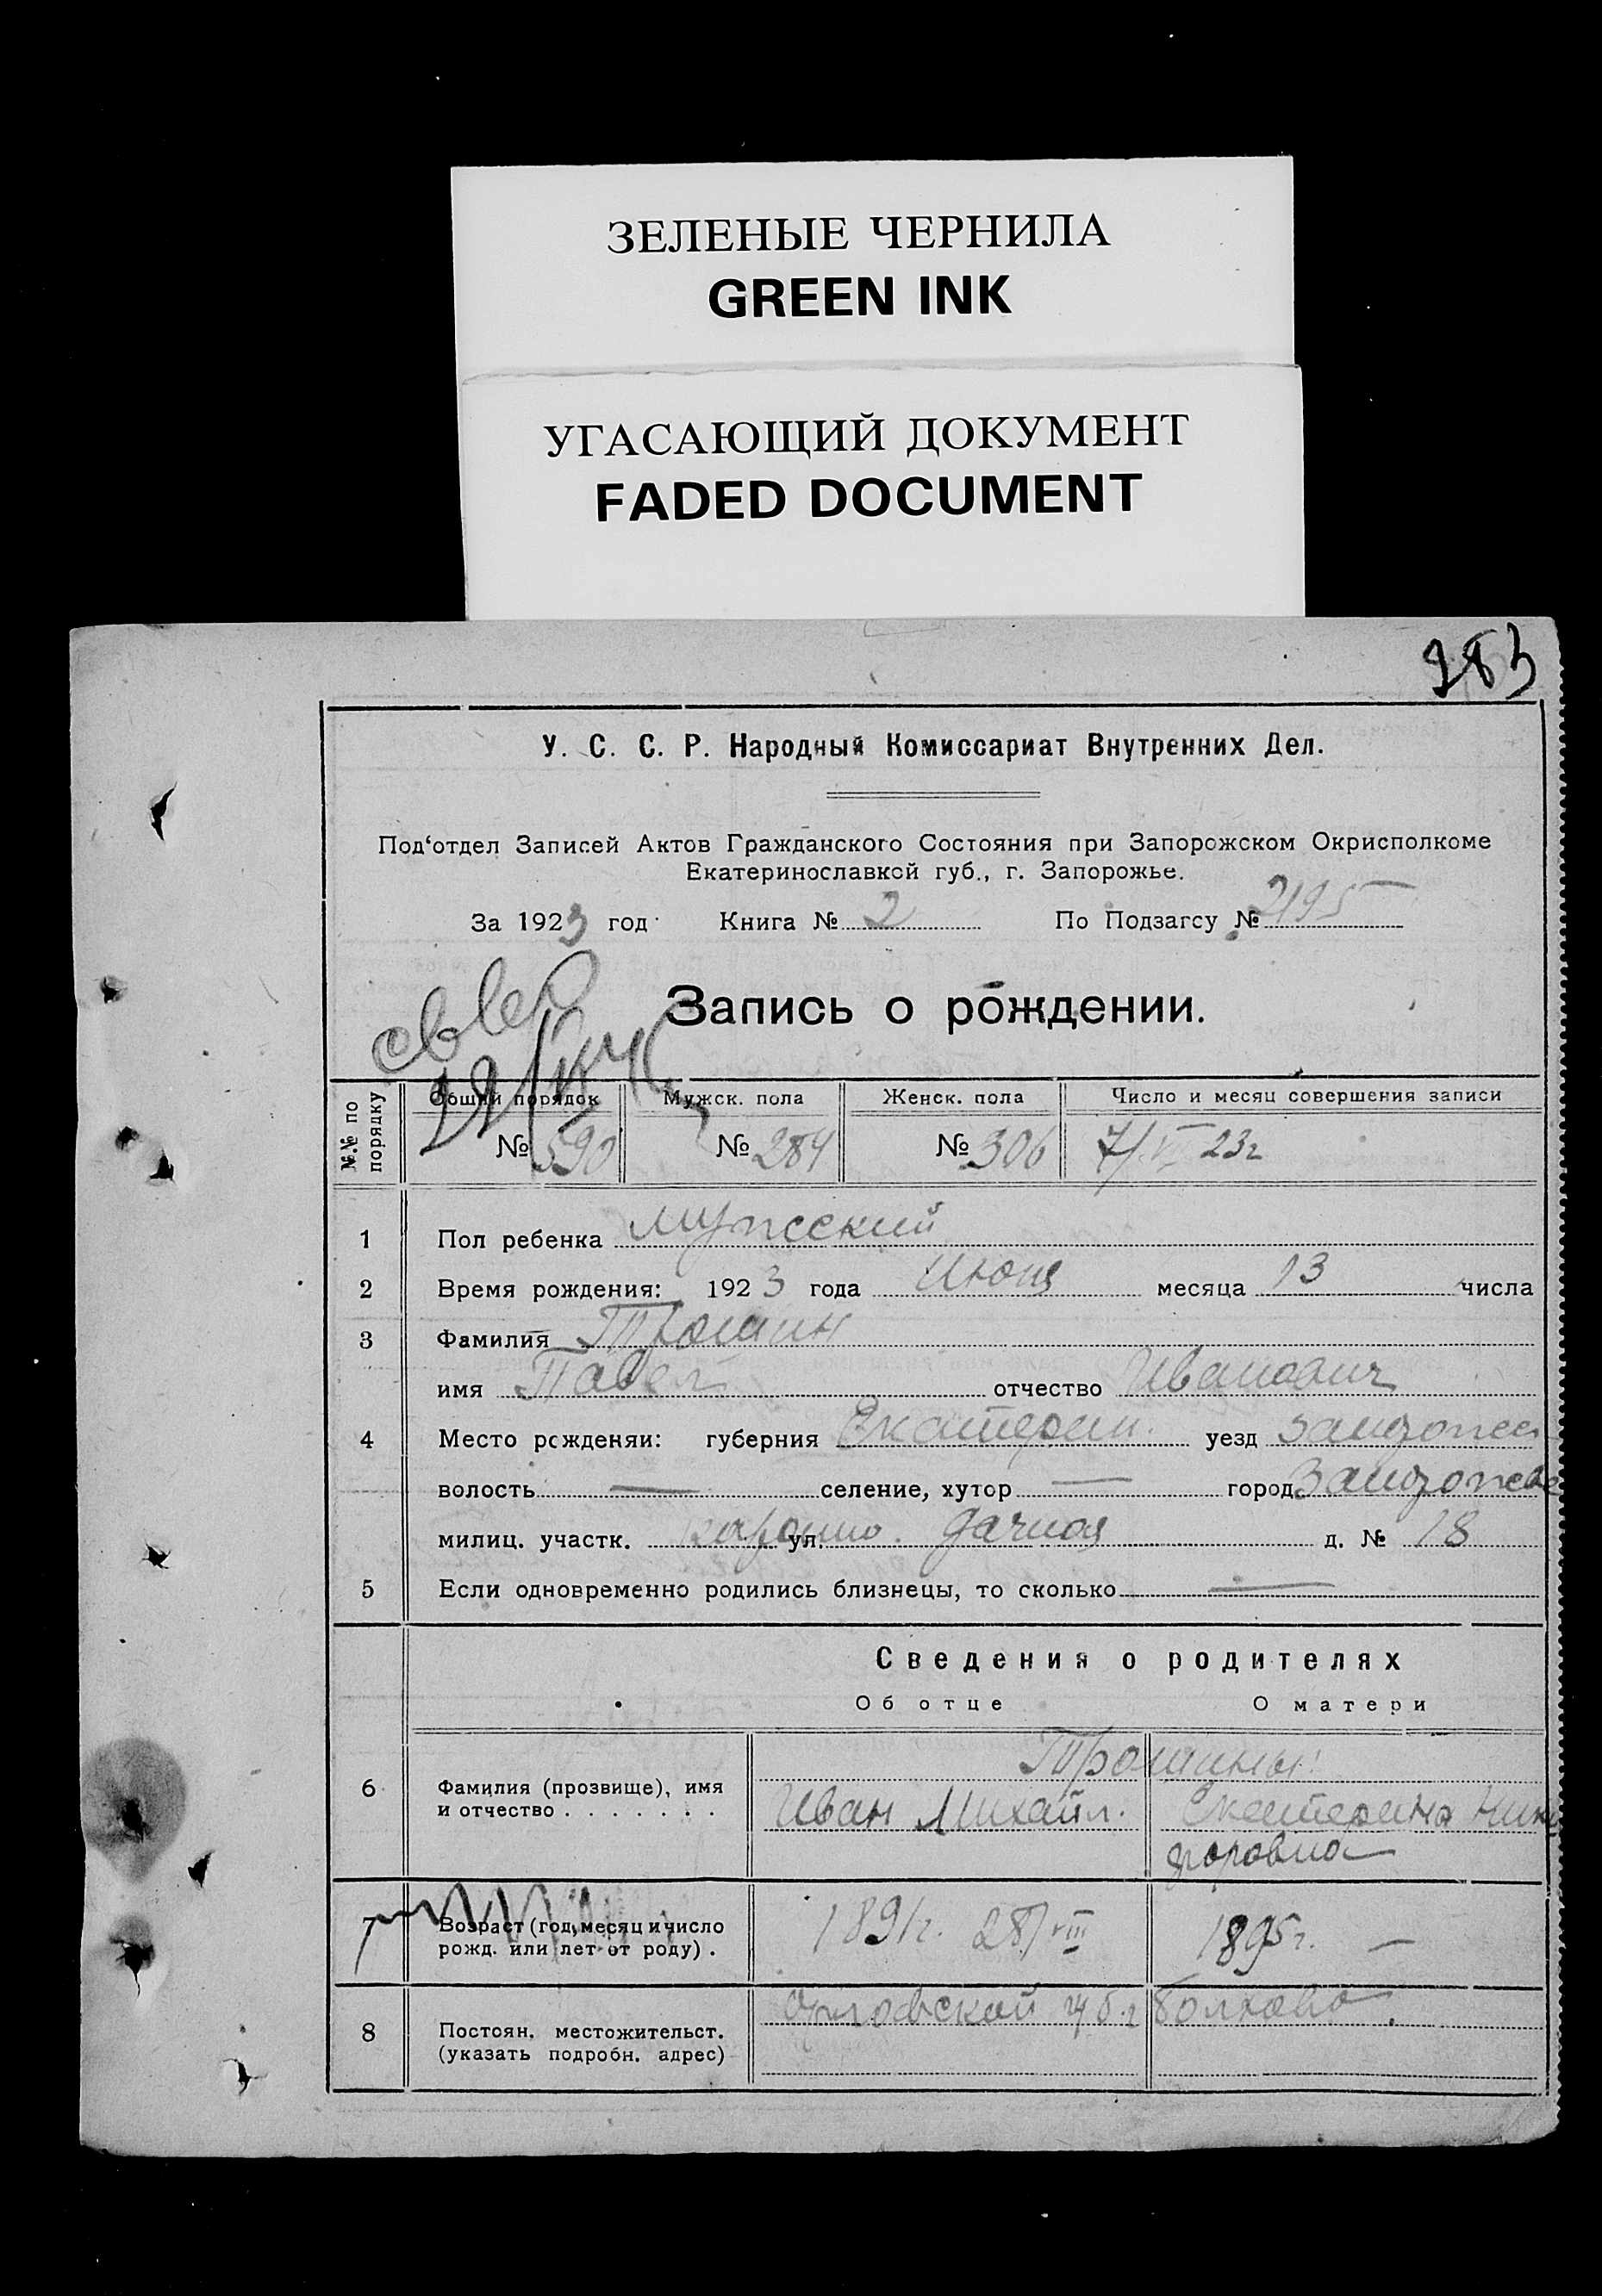 ЗЕЛЕНЫЕ ЧЕРНИЛА
GREEN INK
УГАСАЮЩИЙ ДОКУМЕНТ
FADED DOCUMENT
283
У. С. С. Р. Народный Комиссариат Внутренних Дел.
Под‘отдел Записей Актов Гражданского Состояния при Запорожском Окрисполкоме
Екатеринославкой губ., г. Запорожье.
За 1923 год Книга № 2 По Подзагсу № 2195
Запись о рождении.
№.№ по порядку
Общий порядок Мужск. пола Женск. пола Число и месяц совершения записи
№ 590 № 284 № 306 7/VII 23г
1 Пол ребенка мужеский
2 Время рождения: 1923 года Июня месяца 13 числа
3 Фамилия Трошин
имя Павел отчество Иванович
4 Место рожденяи: губерния Екатерин. уезд
волость — селение, хутор — город
милиц. участк. ул. Дачная д. № 18
5 Если одновременно родились близнецы, то сколько —
Сведения о родителях
Об отце О матери
Трошины:
6 Фамилия (прозвище), имя и отчество . . . . . . . Иван Михайл. Екатерина
7 Возраст (год, месяц и число рожд. или лет от роду) . 1891г. 28/VIII 1895г. —
8 Постоян. местожительст. (указать подробн. адрес) Орловской губ. г Болхова.